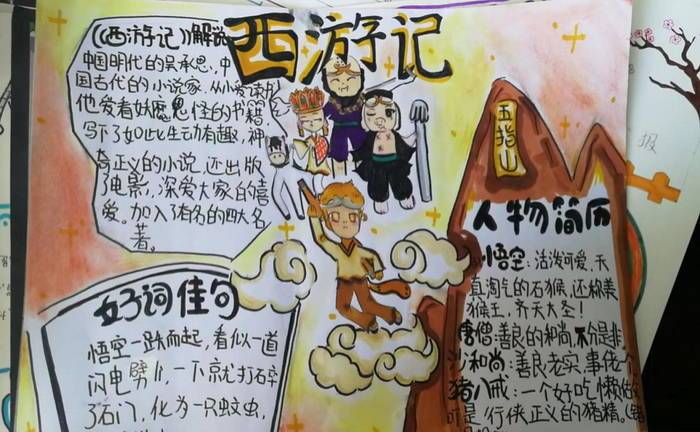 西游记
《西游记》解说
中国明代的吴承恩,中
国古代的小说家,从小爱读书
他爱看妖魔鬼怪的书籍
写下了如此生动有趣,神
奇正义的小说,还出版
了电影,深爱大家的喜
爱。加入了有名的四大名
著。
好词佳句
悟空一跃而起,看似一道
闪电劈儿,一下就打碎
了石门,化为一只蚊虫,
五指山
人物简历
悟空:活泼可爱,天
真淘气的石猴,还称美
猴王,齐天大圣!
唐僧:善良的和尚,不分是非
沙和尚:善良老实,事佬个
猪八戒:一个好吃懒做
可是行侠正义的猪精。
报